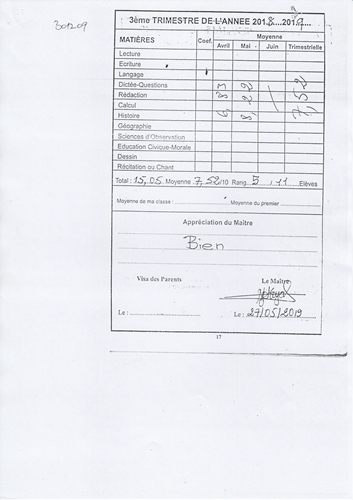 301209
3ème TRIMESTRE DE L'ANNEE 2018...2019....
MATIÈRES Coef. Moyenne
Avril Mai Juin Trimestrielle
Lecture
Ecriture
Langage
Dictée-Questions
Rédaction
Calcul
Histoire
Géographie
Sciences d'Observation
Education Civique-Morale
Dessin
Récitation ou Chant
6,83 8,22 7,52
Total : 15,05 Moyenne 7,52/10 Rang 5 / 11 Elèves
Moyenne de ma classe : Moyenne du premier
Appréciation du Maître
Bien
Visa des Parents Le Maître
Le : Le : 27/05/2019
17